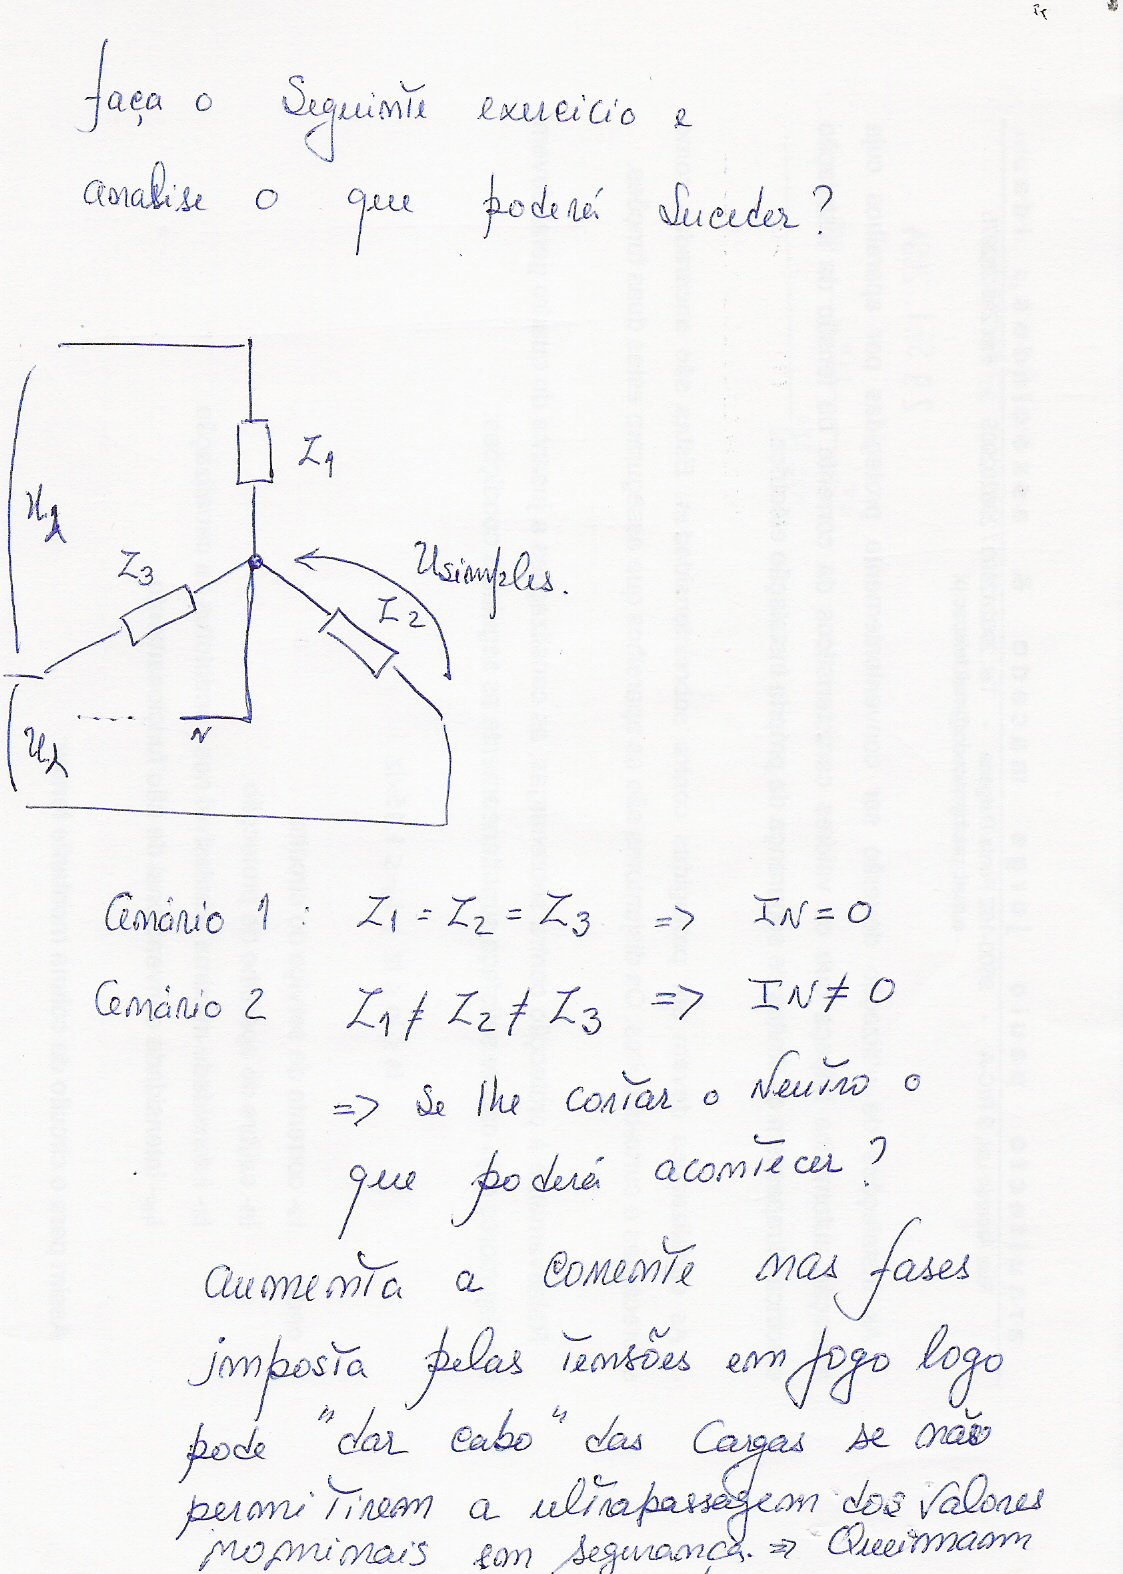 faça o Seguinte exercicio e
analise o que poderá Suceder?
Z1
Z3
Usimples.
Z2
N
Cenário 1 : Z1 = Z2 = Z3 => IN = 0
Cenário 2 Z1 ≠ Z2 ≠ Z3 => IN ≠ 0
=> Se lhe cortar o Neutro o
que poderá acontecer?
aumenta a corrente nas fases
imposta pelas tensões em jogo logo
pode "dar cabo" das Cargas se não
permitirem a ultrapassagem dos Valores
nominais em segurança. => Queimam